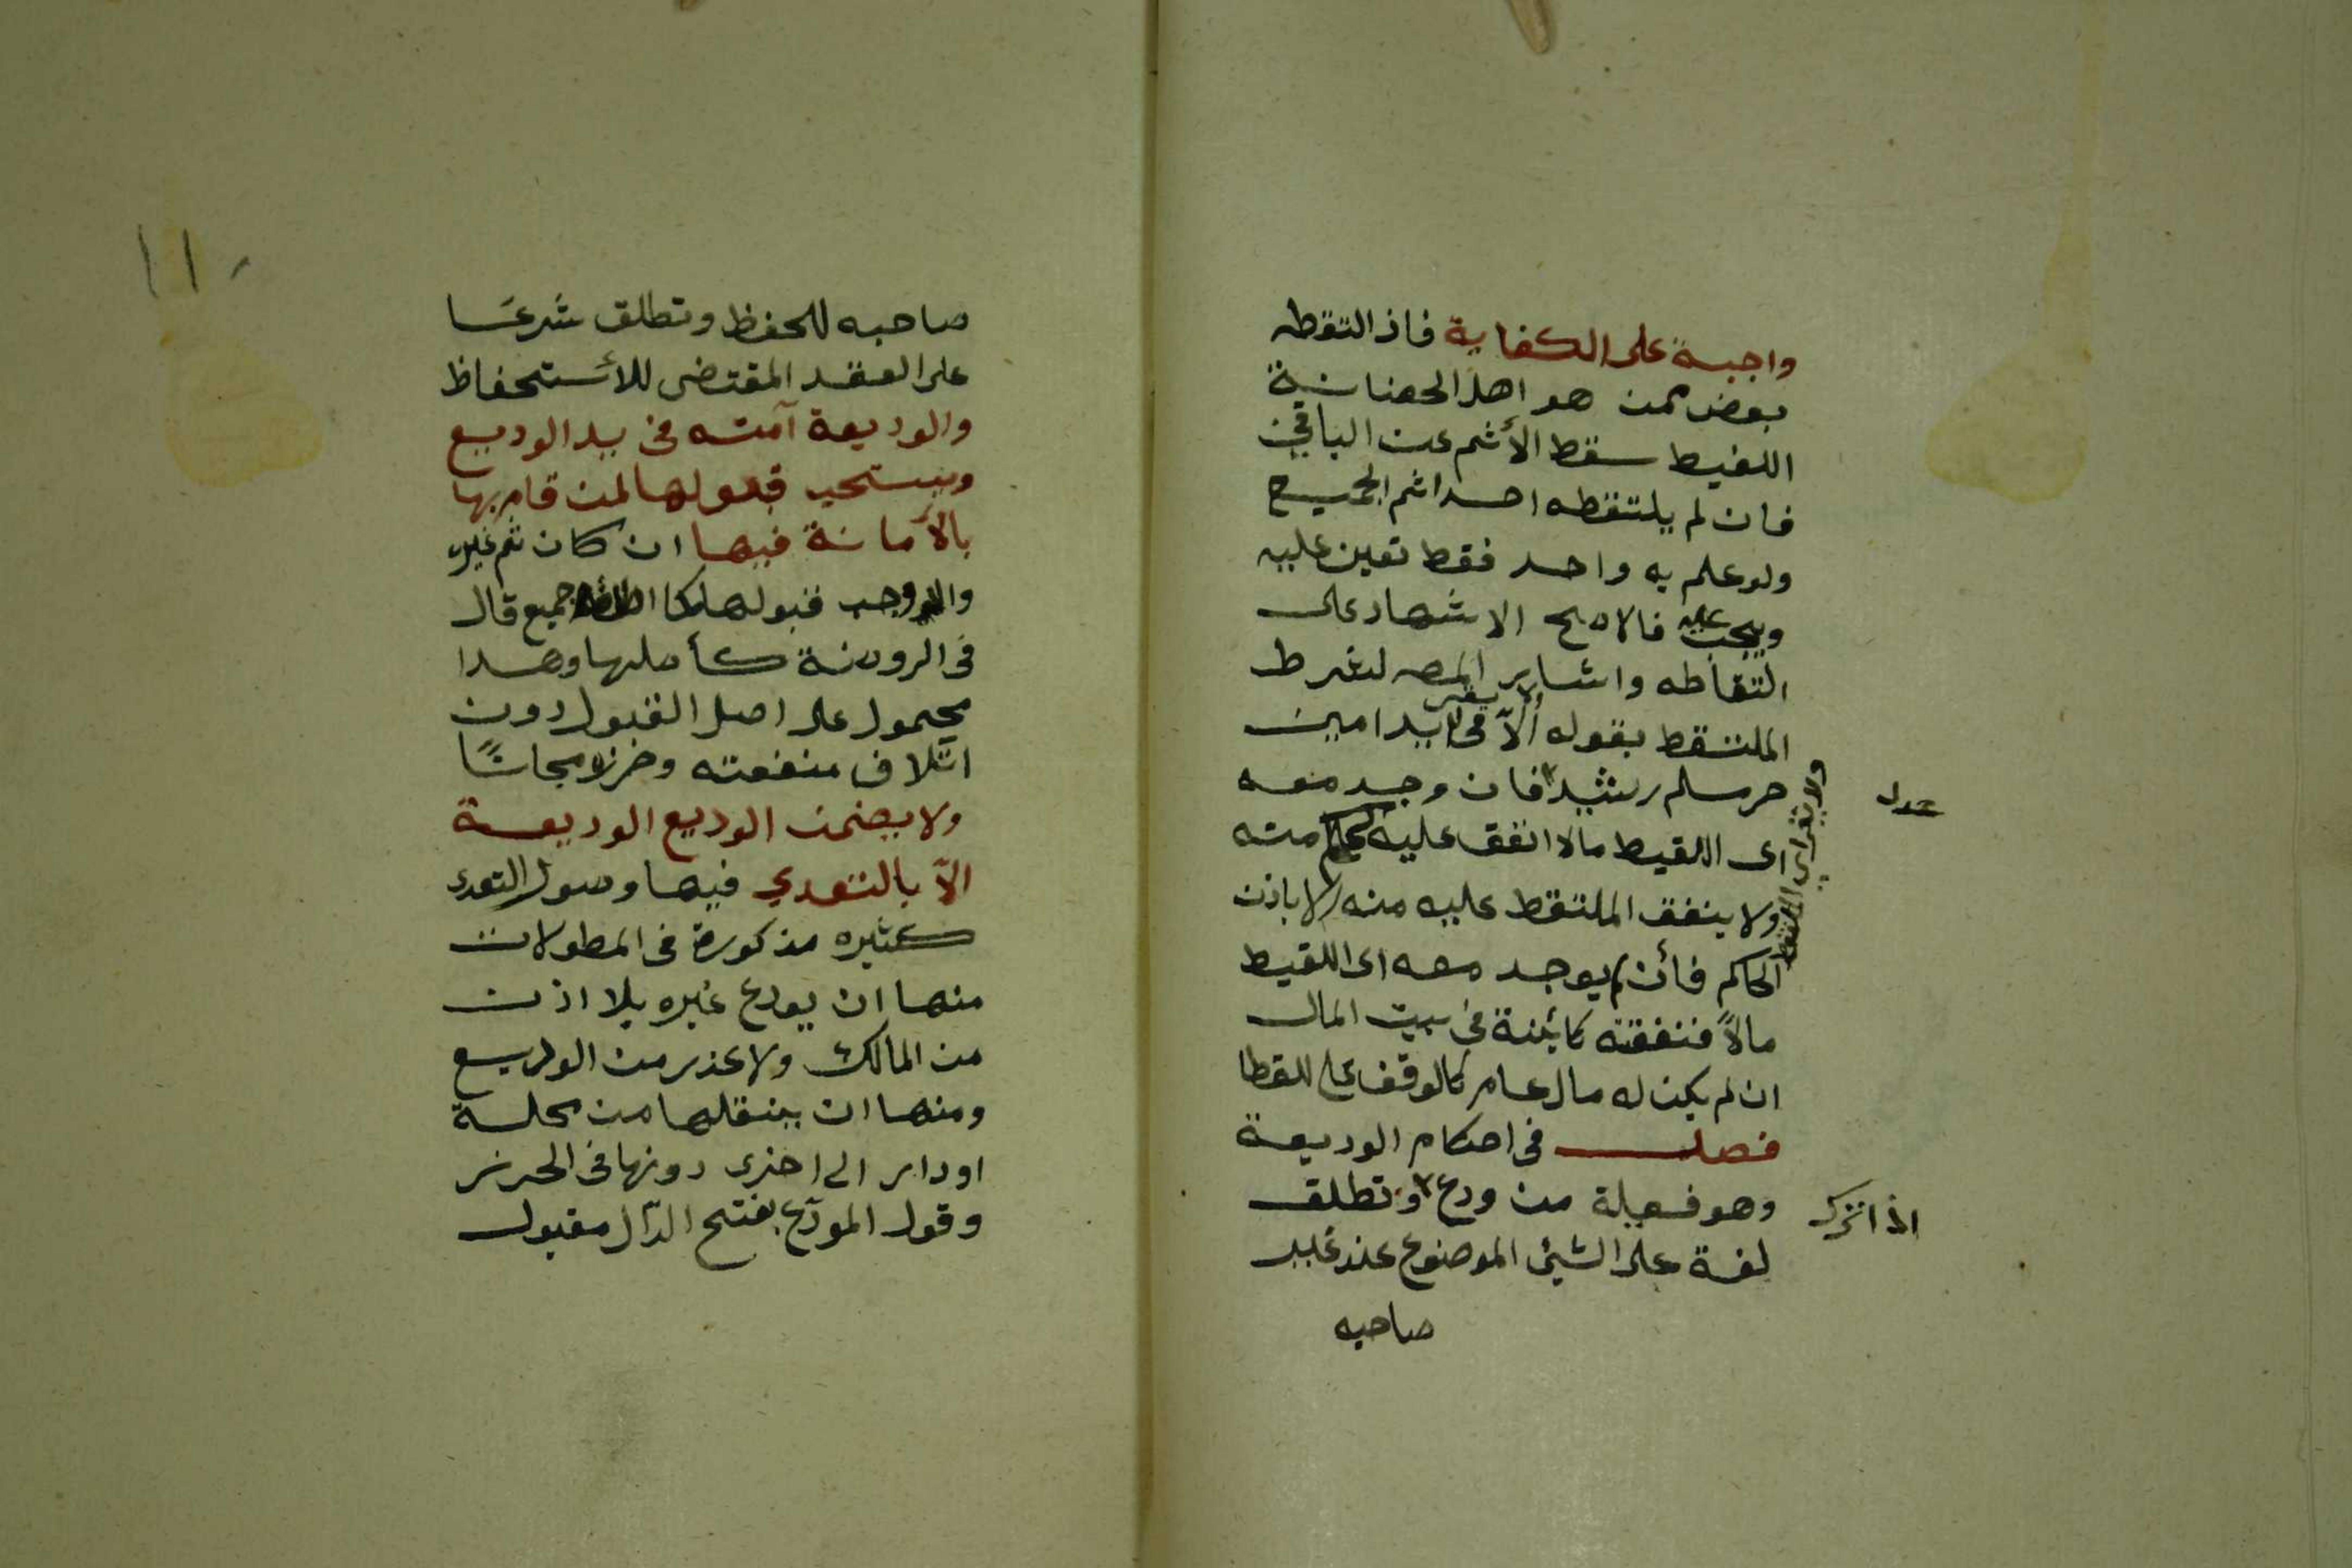 واجبة على الكفاية فاذ التقطه
بعض ممن هو اهل الحضانة
اللقيط سقط الأثم عن الباقي
فان لم يلتقطه احد اثم الجميع
ولو علم به واحد فقط تعين عليه
ويجب عليه فالاصح الاشهاد على
التقاطه واشار المصه لشرط
الملتقط بقوله ولا يقر الآ في يد امين
حر مسلم رشيد فان وجد معه
اى اللقيط مالا انفق عليه الحاكم منه
ولا ينفق الملتقط عليه منه الا باذن
الحاكم فأن لم يوجد معه اى اللقيط
مالاً فنفقته كائنة في بيت المال
ان لم يكن له مال عام كالوقف على اللقطا
فصل في احكام الوديعة
وهو فعيلة من ودع وتطلق
لغة على الشيئ الموضوع عند غير
صاحبه
عدل
اذا ترك
صاحبه للحفظ وتطلق شرعًا
على العقد المقتضى للأستحفاظ
والوديعة آمنه في يد الوديع
ويستحب قبولها لمن قام بها
بالأمانة فيها ان كان ثم غيره
والا وجب قبولها كما اطلقه جميع قال
في الروضة كأصلها وهدا
محمول على اصل القبول دون
اتلاف منفعته وحرزه مجانًا
ولا يضمن الوديع الوديعة
الآ بالتعدي فيها وصول التعدى
كثيره مذكورة في المطولات
منها ان يودع غيره بلا اذن
من المالك ولا عذر من الوديع
ومنها ان ينقلها من محلة
او دار الى اخرى دونها في الحرز
وقول المودَع بفتح الدّال مقبول